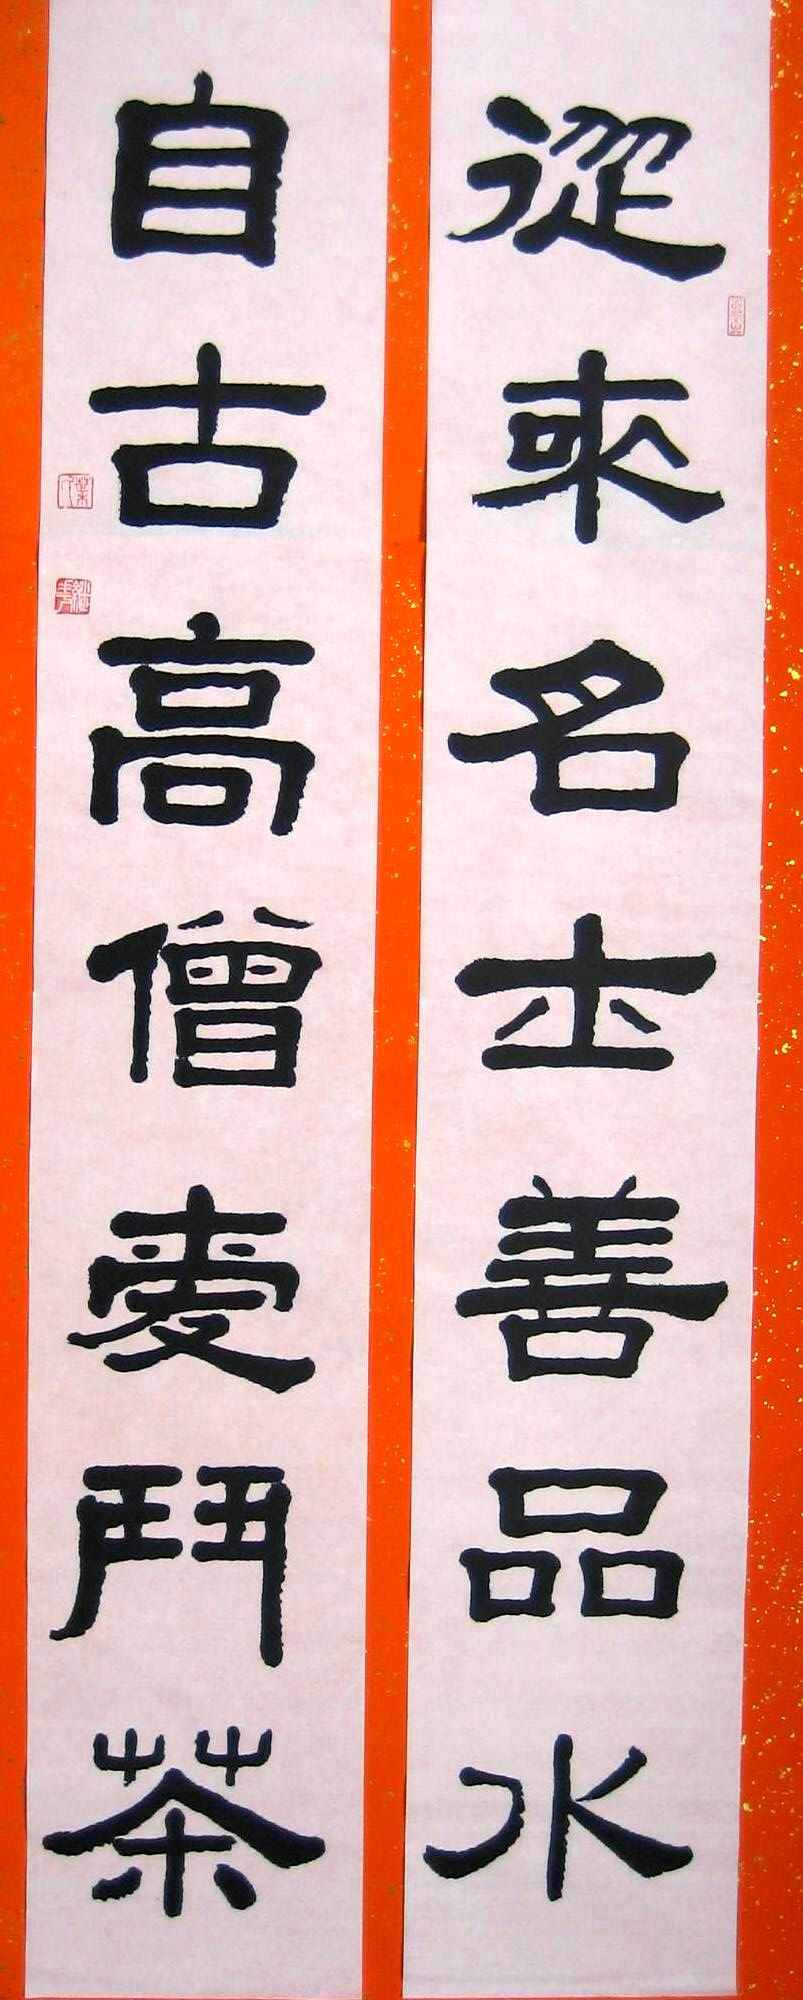 從來名士善品水
自古高僧愛鬥茶